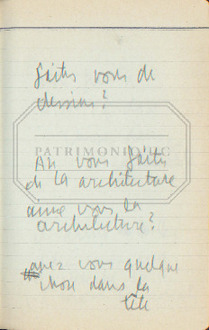 faites vous de
dessins?
PATRIMONIO UC
Ah vous faites
de la architecture
aimez vous la
architecture?
avez vous quelque
chose dans la
tête